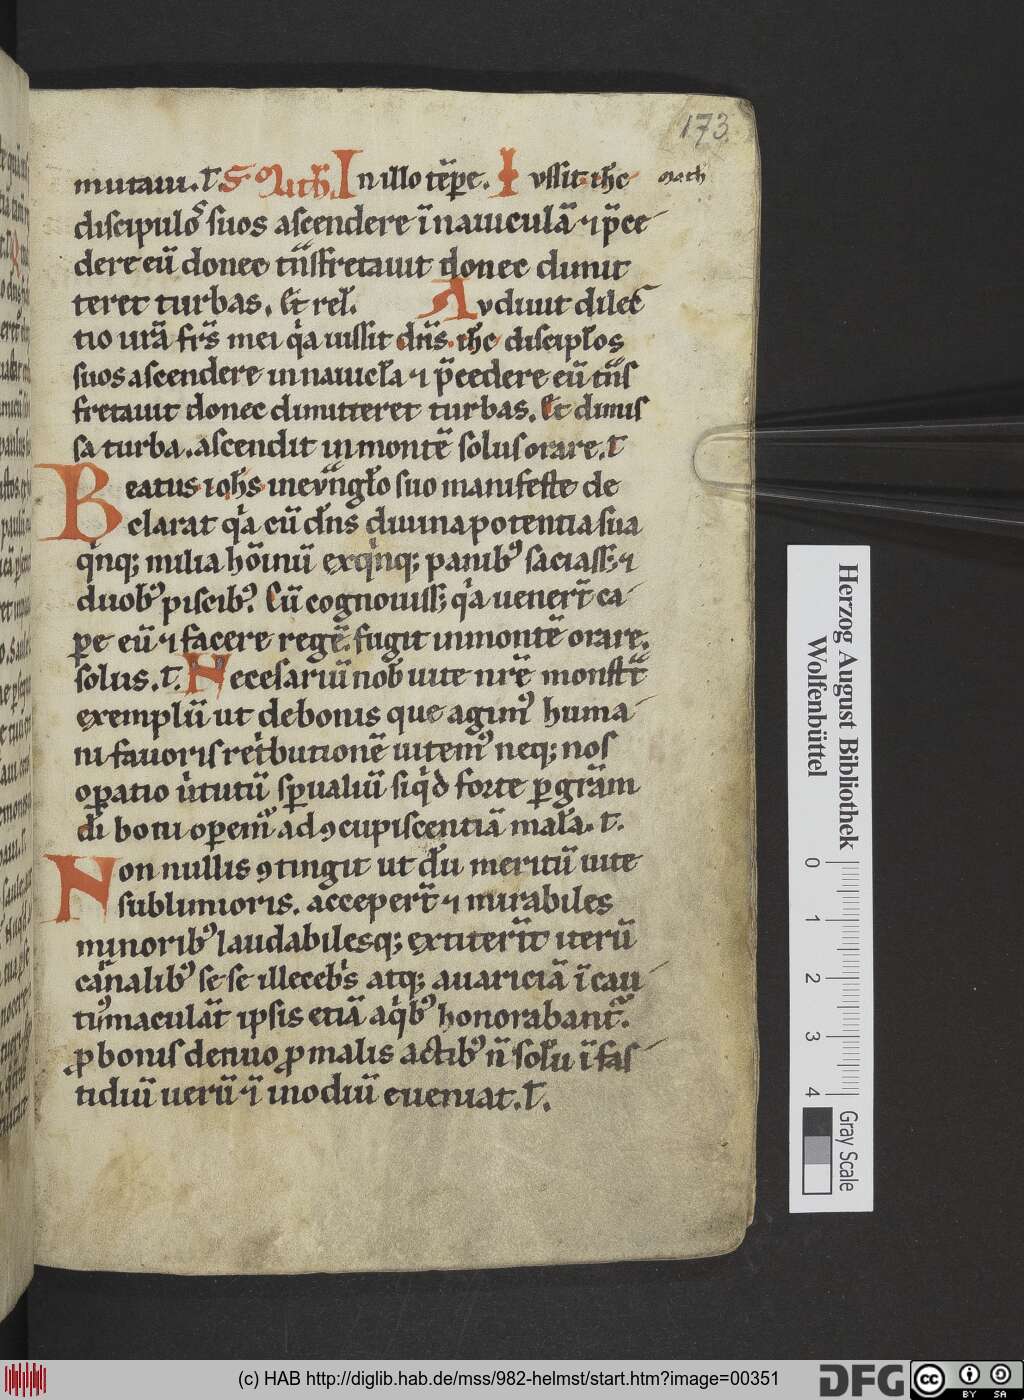 173
mutaui. t̄. S. Math̄. In illo tēpe. Iussit ihc math
discipulos suos ascendere ī nauiculā ⁊ p̄ce
dere eū donec tn̄sfretauit donec dimit
teret turbas. Et rel̄. Audiuit dilec
tio ur̄a fr̄s mei qͥa iussit dn̄s ihc discipl̄os
suos ascendere in nauicl̄a ⁊ p̄cedere eū tn̄s
fretauit donec dimitteret turbas. Et dimis
sa turba. ascendit in montē solus orare. t̄
Beatus ioh̄s in euᷠngl̄o suo manifeste de
clarat qͥa cū dn̄s diuina potentia sua
qͥnq; milia hoīnū ex qͥnq; panibꝰ saciass; ⁊
duobꝰ piscibꝰ. Cū cognouiss; qͥa uener̄t ca
pe eū ⁊ facere regē. fugit in montē orare.
solus. t̄. Necesariū nob̄ uite nr̄e monstr̄t
exemplū ut de bonis que agimꝰ huma
ni fauoris retͥbutionē uitemꝰ neq; nos
oꝑatio uͥtutū sp̄ualiū si qͥd forte ꝑ gr̄am
dī boni oꝑem̄ ad ꝯcupiscentiā mal̄a. t̄.
Non nullis ꝯtingit ut dū meritū uite
sublimioris. acceper̄t ⁊ mirabiles
minoribꝰ laudabilesq; extiterīt iterū
car̄nalibꝰ se se illecebͥs atq; auariciā ī cau
tiꝰ maculāt ipsis etiā a qͥbꝰ honorabant᷑.
ꝓ bonis denuo ꝓ malis actibꝰ n̄ solū ī fas
tidiū uerū ⁊ ī inodiū eueniat. t̄.
Herzog August Bibliothek
Wolfenbüttel
0 1 2 3 4
Gray Scale
(c) HAB http://diglib.hab.de/mss/982-helmst/start.htm?image=00351
DFG
cc
BY SA